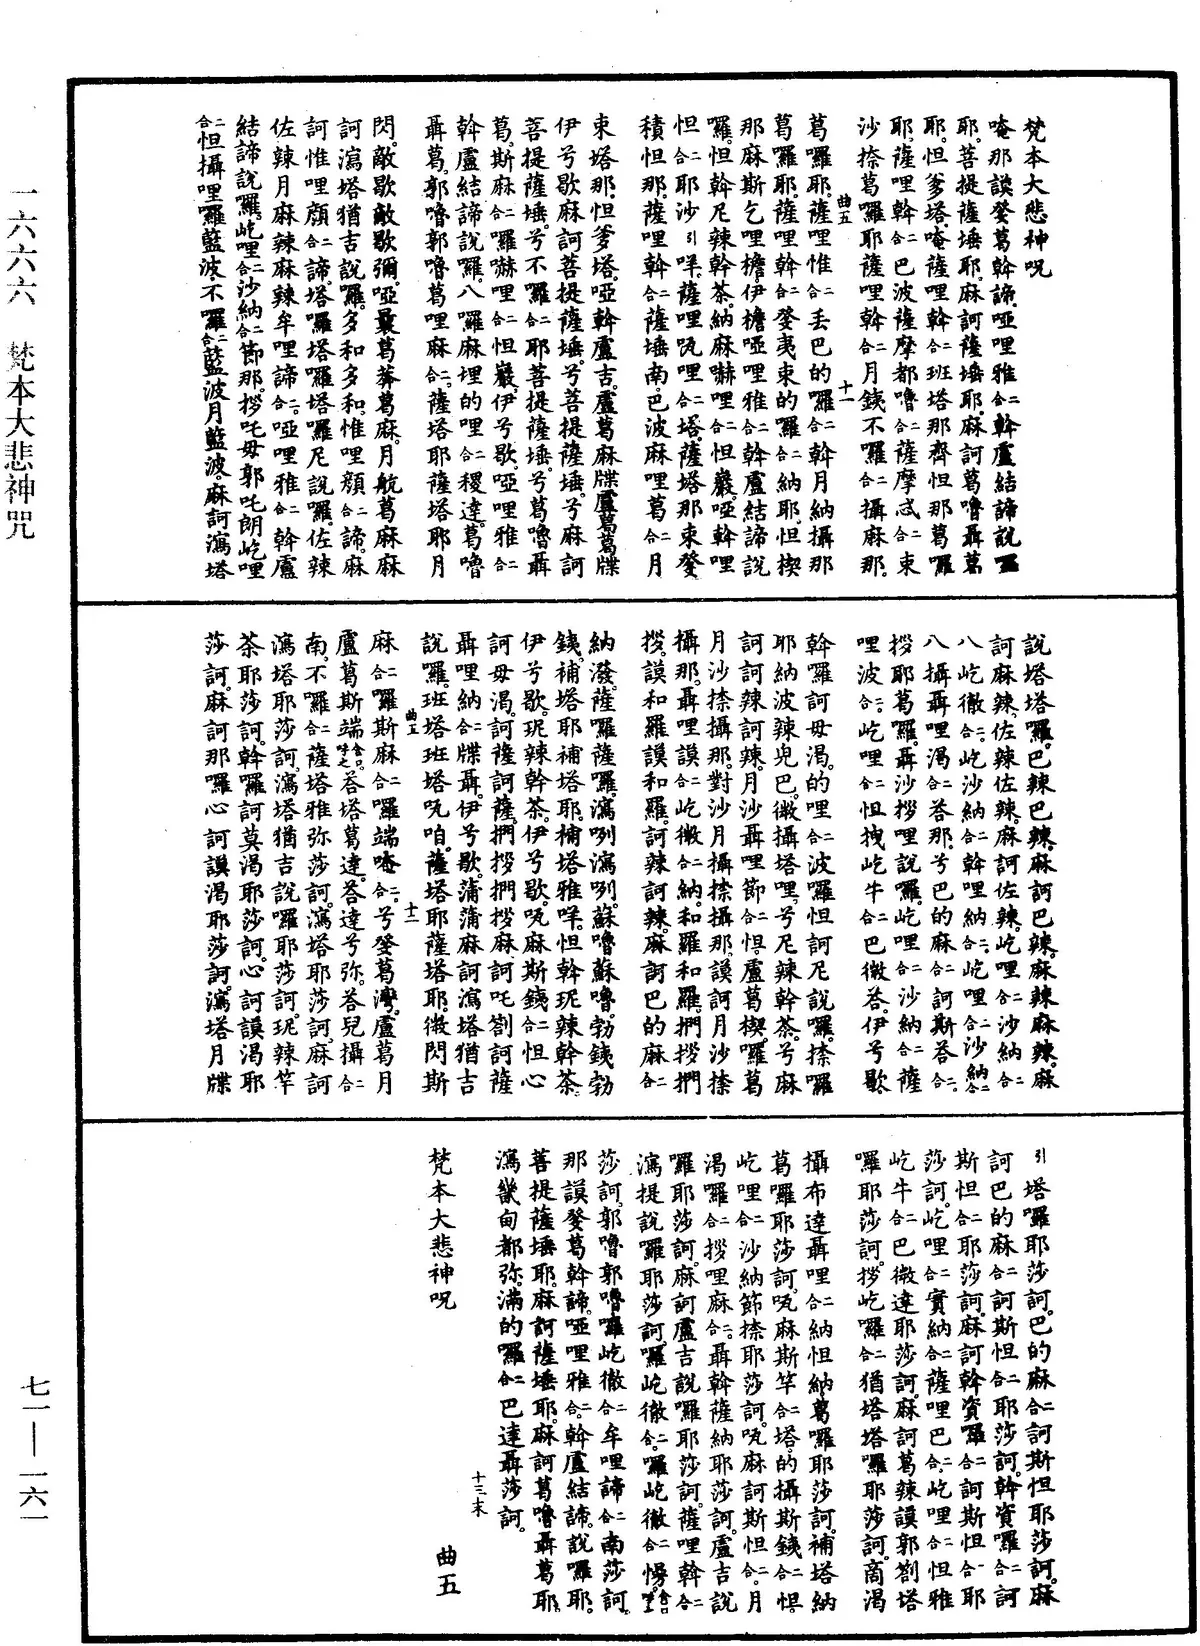 梵本大悲神呪
唵那謨癹葛斡諦啞哩雅二合斡盧結諦說囉
耶菩提薩埵耶麻訶薩埵耶麻訶葛嚕聶葛
耶但爹塔唵薩哩斡二合班塔那齊怛那葛囉
耶薩哩斡二合巴波薩摩都嚕二合薩摩忒二合束
沙捺葛囉耶薩哩斡二合月銕不囉二合攝麻那
曲五 十一
葛囉耶薩哩惟二合丢巴的囉二合斡月納攝那
葛囉耶薩哩斡二合癹夷束的囉二合納耶怛楔
那麻斯乞哩檐伊檐啞哩雅二合斡盧結諦說
囉怛斡尼辣斡荼納麻嚇哩二合怛巖啞斡哩
怛二合耶沙引咩薩哩㕸哩二合塔薩塔那束癹
積怛那薩哩斡二合薩埵南巴波麻哩葛二合月
束塔那怛爹塔啞斡盧吉盧葛麻牒盧葛葛牒
伊兮歇麻訶菩提薩埵兮菩提薩埵兮麻訶
菩提薩埵兮不囉二合耶菩提薩埵兮葛嚕聶
葛斯麻二合囉嚇哩二合怛巖伊兮歇啞哩雅二合
斡盧結諦說囉八囉麻埋的哩二合稷達葛嚕
聶葛郭嚕郭嚕葛哩麻二合薩塔耶薩塔耶月
閃敵歇敵歇彌啞曩葛莽葛麻月航葛麻麻
訶瀉塔猶吉說囉多和多和惟哩顏二合諦麻
訶惟哩顏二合諦塔囉塔囉塔囉尼說囉佐辣
佐辣月麻辣麻辣牟哩諦二合啞哩雅二合斡盧
結諦說囉屹哩二合沙納二合節那拶吒毋郭吒朗屹哩
二合怛攝哩囉藍波不囉二合藍波月藍波麻訶瀉塔
說塔塔囉巴辣巴辣麻訶巴辣麻辣麻辣麻
訶麻辣佐辣佐辣麻訶佐辣屹哩二合沙納二合
八屹徹二合屹沙納二合斡哩納二合屹哩二合沙納二合
八攝聶哩渴二合答那兮巴的麻二合訶斯答二合
拶耶葛囉聶沙拶哩說囉屹哩二合沙納二合薩
哩波二合屹哩二合怛拽屹牛二合巴徹荅伊兮歇
斡囉訶毋渴的哩二合波囉怛訶尼說囉捺囉
耶納波辣兜巴徹攝塔哩兮尼辣斡荼兮麻
訶訶辣訶辣月沙聶哩節二合怛盧葛楔囉葛
月沙捺攝那對沙月攝捺攝那謨訶月沙捺
攝那聶哩謨二合屹徹二合納和囉和囉捫拶捫
拶謨和羅謨和羅訶辣訶辣麻訶巴的麻二合
納潑薩羅薩囉瀉咧瀉咧蘇嚕蘇嚕勃銕勃
銕補塔耶補塔耶補塔雅咩怛斡玭辣斡荼
伊兮歇玭辣斡荼伊兮歇㕸麻斯銕二合怛心
訶毋渴訶薩訶薩捫拶捫拶麻訶吒劄訶薩
聶哩納二合牒聶伊兮歇蒲蒲麻訶瀉塔猶吉
說囉班塔班塔㕸咱薩塔耶薩塔耶徹閃斯
曲五 十二
麻二合羅斯麻二合囉端唵二合兮癹葛灣盧葛月
盧葛斯端合口呼之荅塔葛達荅達兮弥荅兒攝二合
南不羅二合薩塔雅弥莎訶瀉塔耶莎訶麻訶
瀉塔耶莎訶瀉塔猶吉說囉耶莎訶玭辣竿
荼耶莎訶斡囉訶莫渴耶莎訶心訶謨渴耶
莎訶麻訶那囉心訶謨渴耶莎訶瀉塔月牒
引塔囉耶莎訶巴的麻二合訶斯怛耶莎訶麻
訶巴的麻二合訶斯怛二合耶莎訶斡資囉二合訶
斯怛二合耶莎訶麻訶斡資羅二合訶斯怛二合耶
莎訶屹哩二合實納二合薩哩巴二合屹哩二合怛雅
屹牛二合巴徹達耶莎訶麻訶葛辣謨郭劄塔
囉耶莎訶拶屹囉二合猶塔塔囉耶莎訶商渴
攝布達聶哩二合納怛納葛囉耶莎訶補塔納
葛囉耶莎訶㕸麻斯竿二合塔的攝斯銕二合怛
屹哩二合沙納節捺耶莎訶㕸麻訶斯怛二合月
渴囉二合拶哩麻二合聶斡薩納耶莎訶盧吉說
囉耶莎訶麻訶盧吉說囉耶莎訶薩哩斡二合
瀉提說囉耶莎訶囉屹徹二合囉屹徹二合㦬
莎訶郭嚕郭嚕囉屹徹二合牟哩諦二合南莎訶
那謨癹葛斡諦啞哩雅二合斡盧結諦說囉耶
菩提薩埵耶麻訶薩埵耶麻訶葛嚕聶葛耶
瀉㘕甸都弥滿的囉二合巴達聶莎訶
十三末
梵本大悲神呪 曲五
一六六六 梵本大悲神咒
七一—一六一